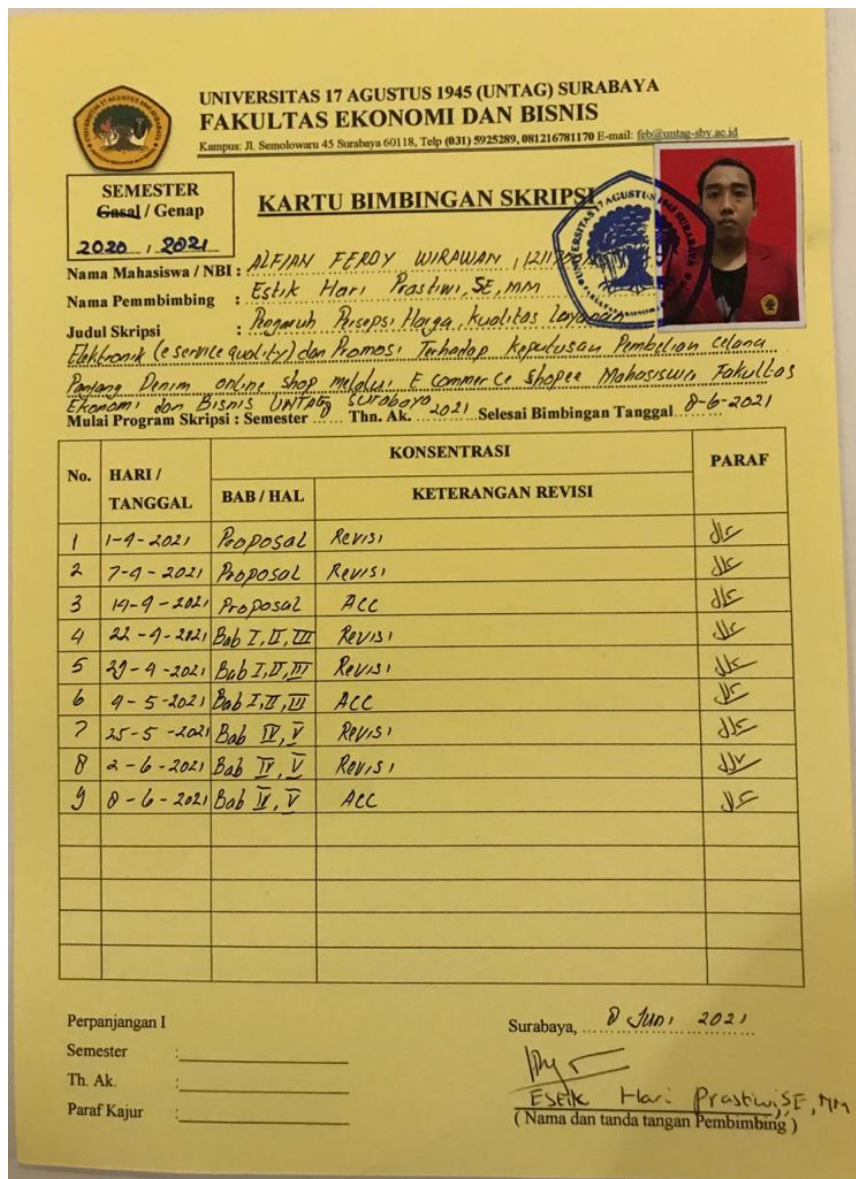 UNIVERSITAS 17 AGUSTUS 1945 (UNTAG) SURABAYA
FAKULTAS EKONOMI DAN BISNIS
Kampus: Jl. Semolowaru 45 Surabaya 60118, Telp (031) 5925289, 081216781170 E-mail: feb@untag-sby.ac.id
SEMESTER
Gasal / Genap
2020 / 2021
KARTU BIMBINGAN SKRIPSI
Nama Mahasiswa / NBI : ALFIAN FERDY WIRAWAN /
Nama Pemmbimbing : Estik Hari Prastiwi, SE, MM
Judul Skripsi : Pengaruh Persepsi Harga, Kualitas Layanan
Elektronik (e service quality) dan Promosi Terhadap Keputusan Pembelian Celana
Panjang Denim online shop melalui E commerce shopee Mahasiswa Fakultas
Ekonomi dan Bisnis UNTAG Surabaya
Mulai Program Skripsi : Semester ...... Thn. Ak. 2021 Selesai Bimbingan Tanggal 8-6-2021
No. HARI / TANGGAL KONSENTRASI PARAF
BAB / HAL KETERANGAN REVISI
1 1-4-2021 Proposal Revisi
2 7-4-2021 Proposal Revisi
3 14-4-2021 Proposal ACC
4 22-4-2021 Bab I, II, III Revisi
5 29-4-2021 Bab I, II, III Revisi
6 4-5-2021 Bab I, II, III ACC
7 25-5-2021 Bab IV, V Revisi
8 2-6-2021 Bab IV, V Revisi
9 8-6-2021 Bab IV, V ACC
Perpanjangan I
Semester :
Th. Ak. :
Paraf Kajur :
Surabaya, 8 Juni 2021
Estik Hari Prastiwi, SE, MM
( Nama dan tanda tangan Pembimbing )